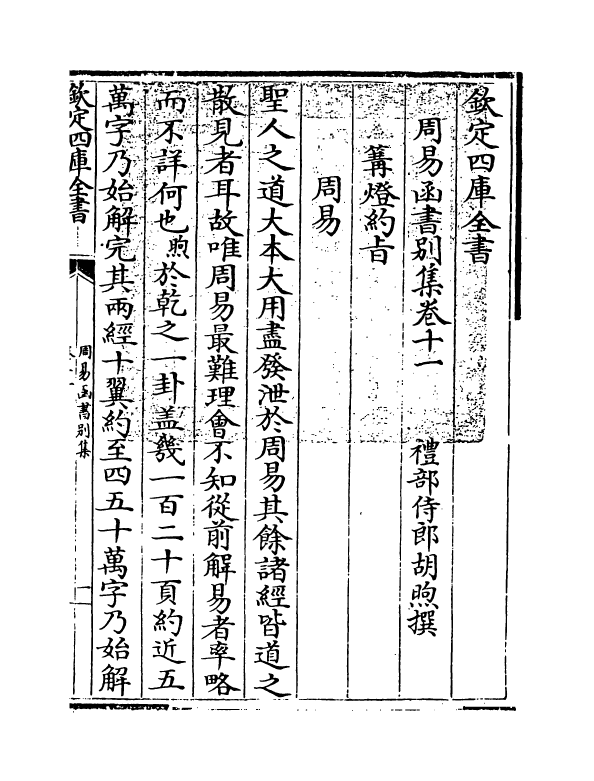 欽定四庫全書
周易函書別集卷十一 禮部侍郎胡煦撰
篝燈約旨
周易
聖人之道大本大用盡發泄於周易其餘諸經皆道之
散見者耳故唯周易最難理會不知從前解易者率略
而不詳何也煦於乾之一卦盖幾一百二十頁約近五
萬字乃始解完其兩經十翼約至四五十萬字乃始解
欽定四庫全書
周易函書別集
一